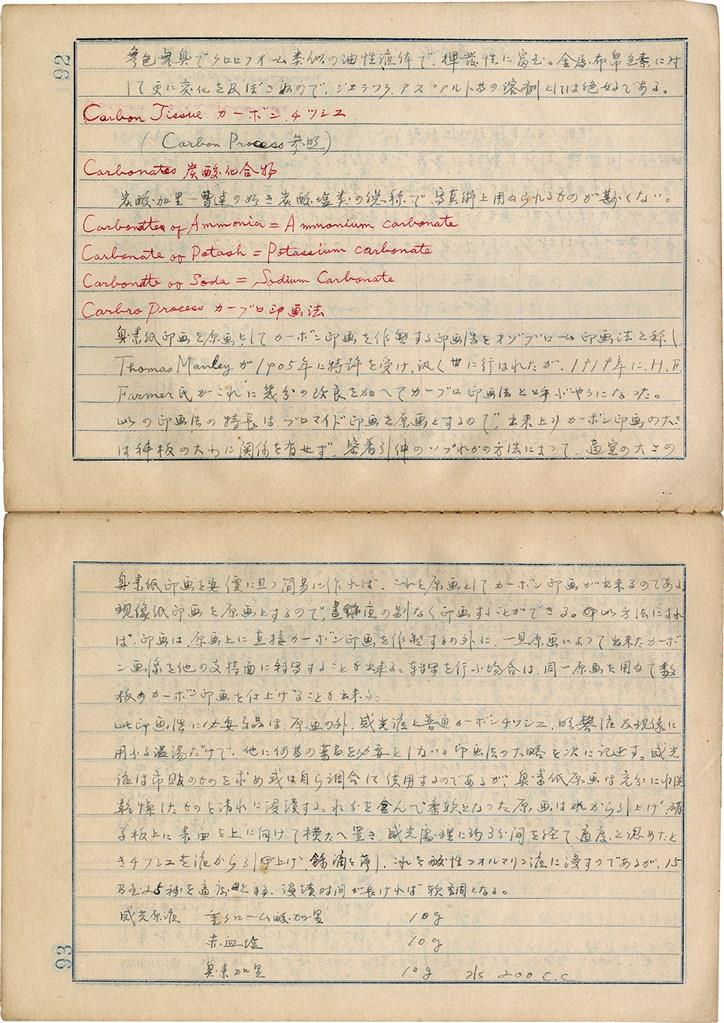 92
無色無臭でクロロフォーム類似の油性液体で、揮発性に富む。金属布帛色素に対
して更に変化を及ぼさぬので、ゼラチン、アスファルト等の溶剤としては絶好である。
Carbon Tissue カーボン.チツシユ
(Carbon Process 参照)
Carbonates 炭酸化合物
炭酸加里 曹達の如き炭酸塩類の総称で、写真術上用ゐられるものが尠くない。
Carbonates of Ammonia = Ammonium carbonate
Carbonate of Potash = Potassium carbonate
Carbonate of Soda = Sodium Carbonate
Carbro Process カーブロ印画法
臭素紙印画を原画としてカーボン印画を作製する印画法をオゾブローム印画法と称し
Thomas Manley が1905年に特許を受け、汎く世に行はれたが、1919年に、H. F
Farmer氏がこれに幾分の改良を加へてカーブロ印画法と呼ぶやうになった。
此の印画法の特長は、ブロマイド印画を原画とするので、出来上りカーボン印画の大さ
は種板の大小に関係を有せず、密着引伸のいづれかの方法によって、適宜の大さの
臭素紙印画を安価に且つ簡易に作れば、これを原画としてカーボン印画が出来るのである
現像紙印画を原画とするので 昼夜の別なく印画することができる。此方法にすれ
ば、印画は、原画上に直接カーボン印画を作製するの外に、一旦原画によって出来たカーボ
ン画像を他の支持面に転写することも出来る。転写を行ふ場合は、同一原画を用ゐて数
枚のカーボン印画を仕上げることも出来る。
此印画法に必要な品は、原画の外、感光液と普通カーボンチツシユ、 液及現像に
用ふる温湯だけで、他に何等の薬品を必要としない。印画法の大略を次に記述す。感光
液は市販のものを求め或は自ら調合して使用するのであるが、臭素紙原画は充分に水洗
乾燥したものを清水に浸漬する。水分を含んで柔軟となった原画は水から引上げ硝
子板上に表面を上に向けて横たへ置き、感光処理に約3分間を経て適度と認めたと
きチツシユを液から引上げ、余滴を落し、これを酸性フォルマリン液に浸すのであるが、15
乃至25秒を適度とする、浸漬時間が長ければ軟調となる。
感光原液 重クローム酸加里 10g
赤血塩 10g
臭素加里 10g 水 200 C.C
93